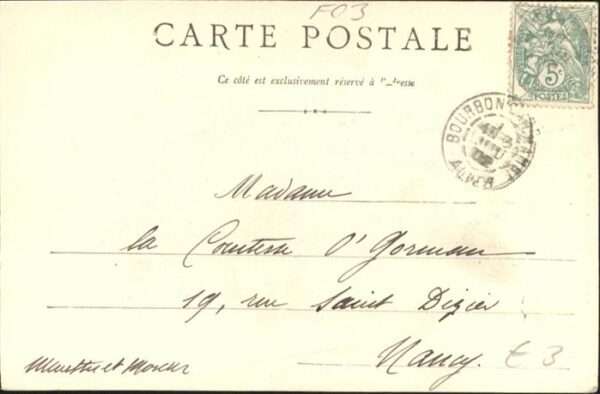 F03
CARTE POSTALE
Ce côté est exclusivement réservé à l'adresse
5c
POSTES
BOURBONNE
02
Madame
la Comtesse O'Gorman
19, rue Saint Dizier
Nancy.
Meurthe et Moselle
£ 3